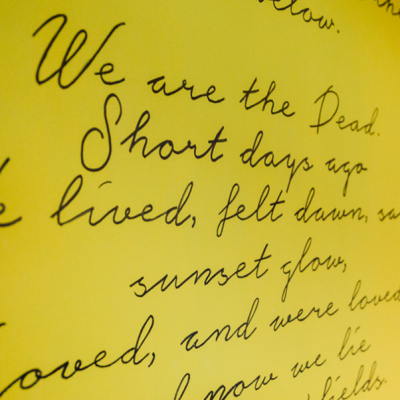 below.
We are the Dead.
Short days ago
lived, felt dawn,
sunset glow,
loved, and were loved
now we lie
fields.